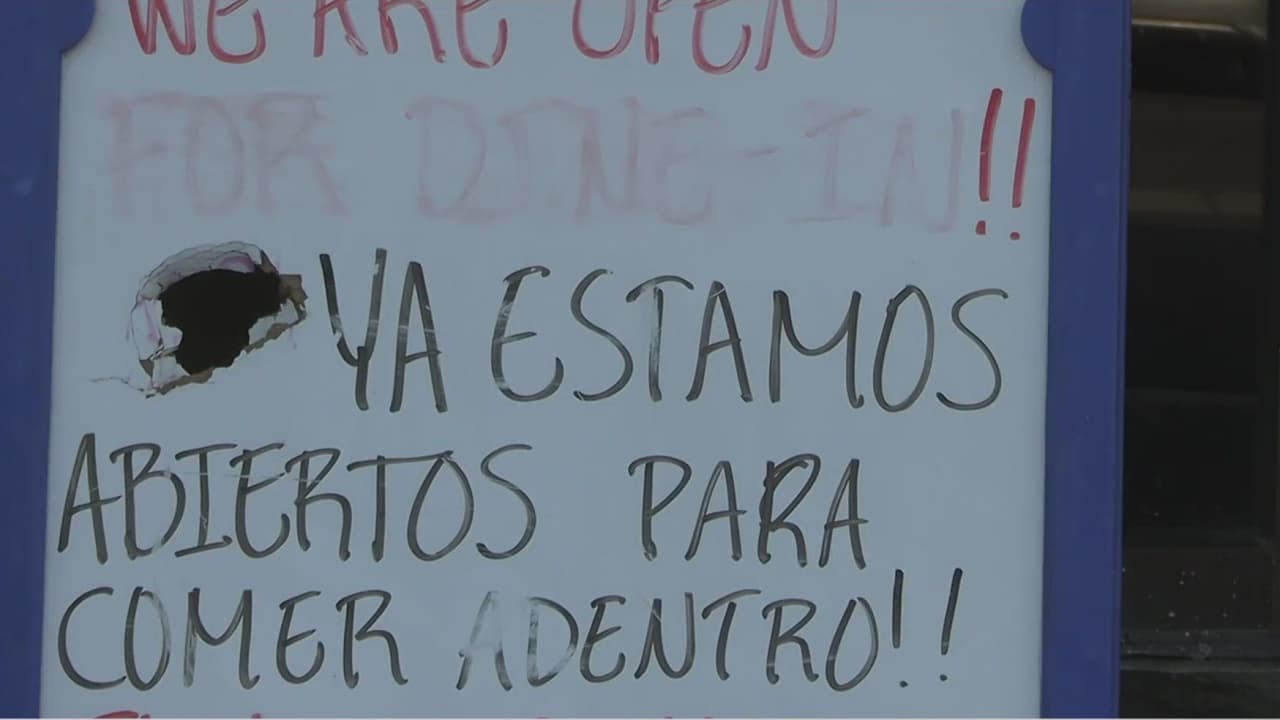 WE ARE OPEN
FOR DINE-IN!!
YA ESTAMOS
ABIERTOS PARA
COMER ADENTRO!!